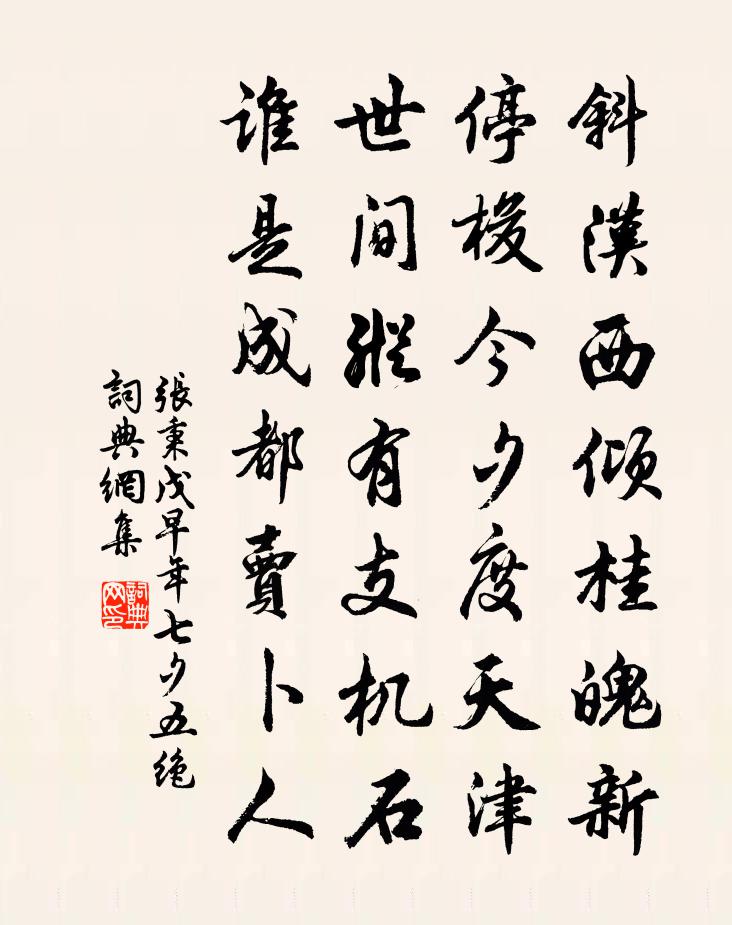 斜漢西傾桂魄新
停梭今夕度天津
世間縱有支机石
誰是成都賣卜人
張秉戊早年七夕五絶
詞典網集
詞典网印